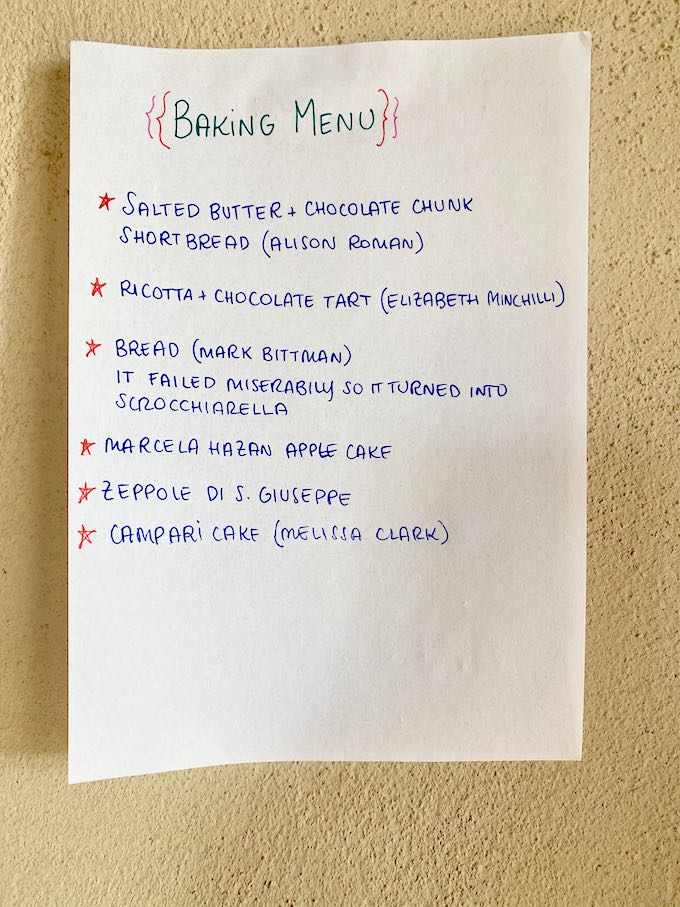 {{BAKING MENU}}
★ SALTED BUTTER + CHOCOLATE CHUNK
SHORTBREAD (ALISON ROMAN)
★ RICOTTA + CHOCOLATE TART (ELIZABETH MINCHILLI)
★ BREAD (MARK BITTMAN)
IT FAILED MISERABILY SO IT TURNED INTO
SCROCCHIARELLA
★ MARCELA HAZAN APPLE CAKE
★ ZEPPOLE DI S. GIUSEPPE
★ CAMPARI CAKE (MELISSA CLARK)